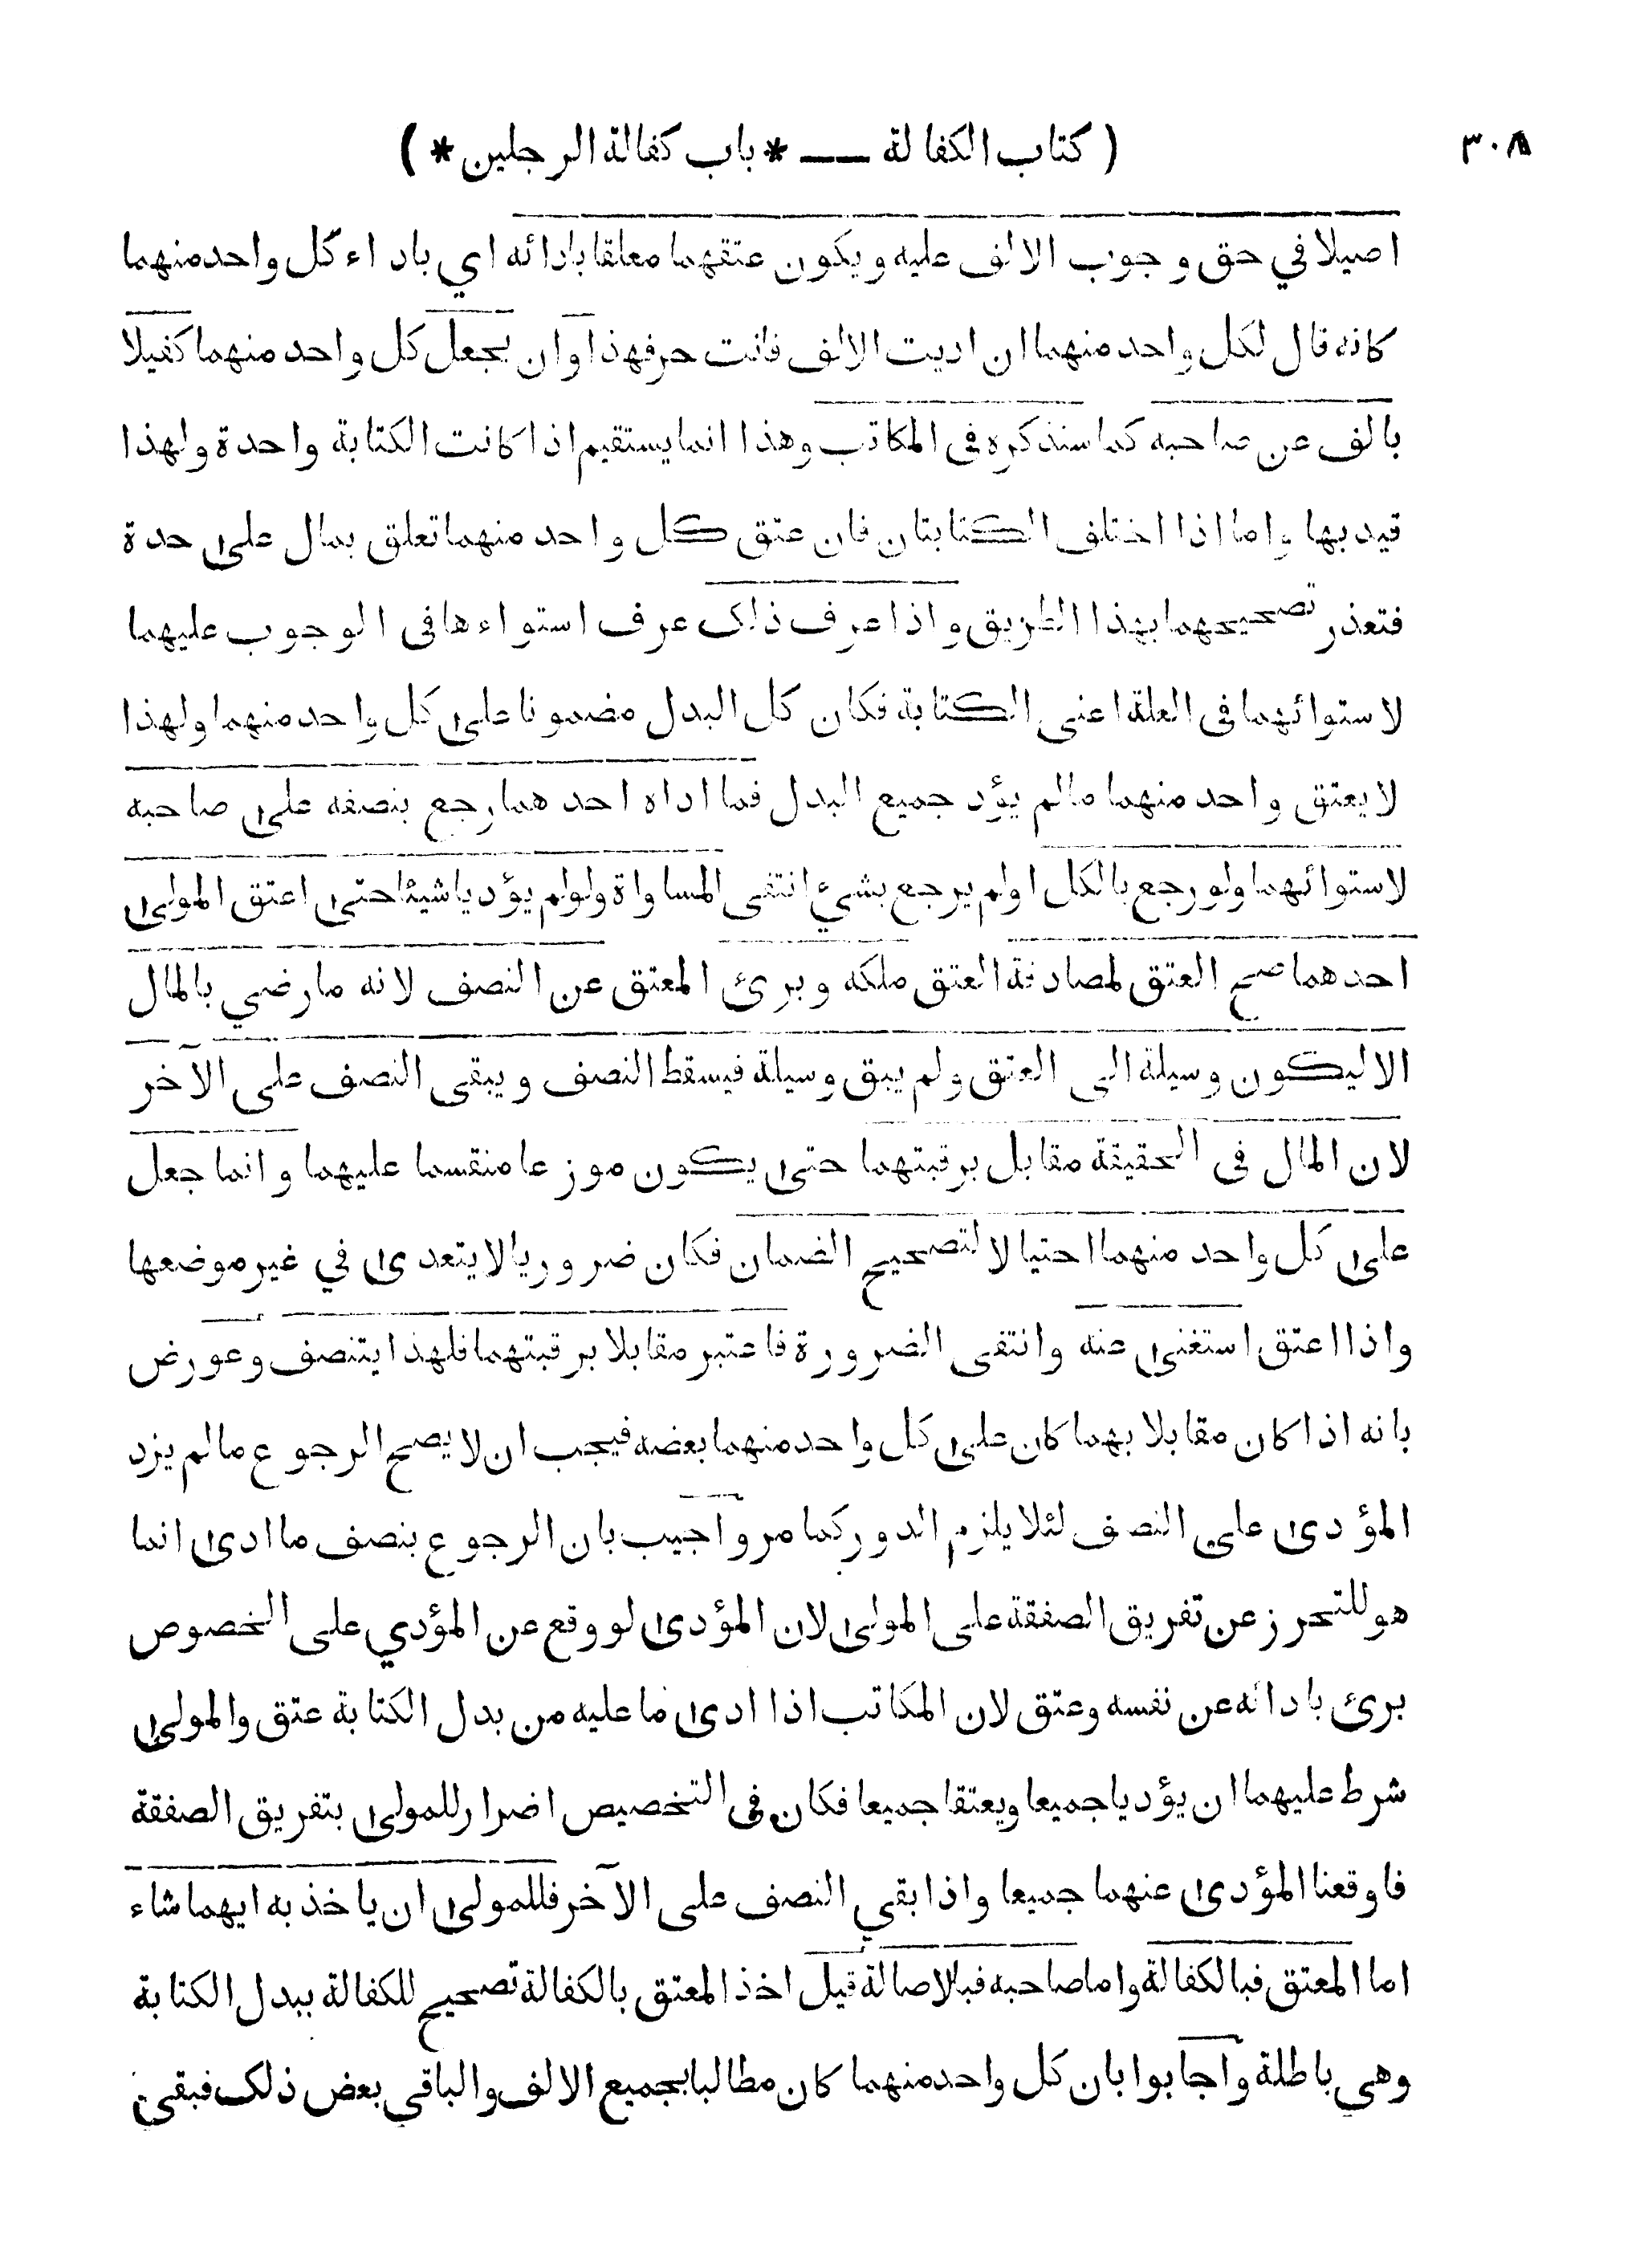 ٣٠٨ ( كتاب الكفالة — * باب كفالة الرجلين * )
اصيلا في حق وجوب الالف عليه ويكون عتقهما معلقا بادائه اي باداء كل واحد منهما
كانه قال لكل واحد منهما ان اديت الالف فانت حر فهذا وان يجعل كل واحد منهما كفيلا
بالف عن صاحبه كما سنذكره فى المكاتب وهذا انما يستقيم اذا كانت الكتابة واحدة ولهذا
قيد بها واما اذا اختلف الكتابتان فان عتق كل واحد منهما تعلق بمال على حدة
فتعذر تصحيحهما بهذا الطريق واذا عرف ذلك عرف استواءها فى الوجوب عليهما
لاستوائهما فى العلة اعنى الكتابة فكان كل البدل مضمونا على كل واحد منهما ولهذا
لا يعتق واحد منهما مالم يؤد جميع البدل فما اداه احدهما رجع بنصفه على صاحبه
لاستوائهما ولو رجع بالكل اولم يرجع بشئ انتفى المساواة ولولم يؤديا شيئا حتى اعتق المولى
احدهما صح العتق لمصادفة العتق ملكه وبرئ المعتق عن النصف لانه مارضي بالمال
الا ليكون وسيلة الى العتق ولم يبق وسيلة فيسقط النصف ويبقى النصف على الآخر
لان المال فى الحقيقة مقابل برقبتهما حتى يكون موزعا منقسما عليهما وانما جعل
على كل واحد منهما احتيالا لتصحيح الضمان فكان ضروريا لا يتعدى في غير موضعها
واذا اعتق استغنى عنه وانتفى الضرورة فاعتبر مقابلا برقبتهما فلهذا يتنصف وعورض
بانه اذا كان مقابلا بهما كان على كل واحد منهما بعضه فيجب ان لا يصح الرجوع مالم يزد
المؤدى على النصف لئلا يلزم الدور كما مر واجيب بان الرجوع بنصف ما ادى انما
هو للتحرز عن تفريق الصفقة على المولى لان المؤدى لو وقع عن المؤدي على الخصوص
برئ بادائه عن نفسه وعتق لان المكاتب اذا ادى ما عليه من بدل الكتابة عتق والمولى
شرط عليهما ان يؤديا جميعا ويعتقا جميعا فكان فى التخصيص اضرار للمولى بتفريق الصفقة
فاوقعنا المؤدى عنهما جميعا واذا بقي النصف على الآخر فللمولى ان ياخذ به ايهما شاء
اما المعتق فبالكفالة واما صاحبه فبالاصالة قيل اخذ المعتق بالكفالة تصحيح للكفالة ببدل الكتابة
وهي باطلة واجابوا بان كل واحد منهما كان مطالبا بجميع الالف والباقي بعض ذلك فبقى